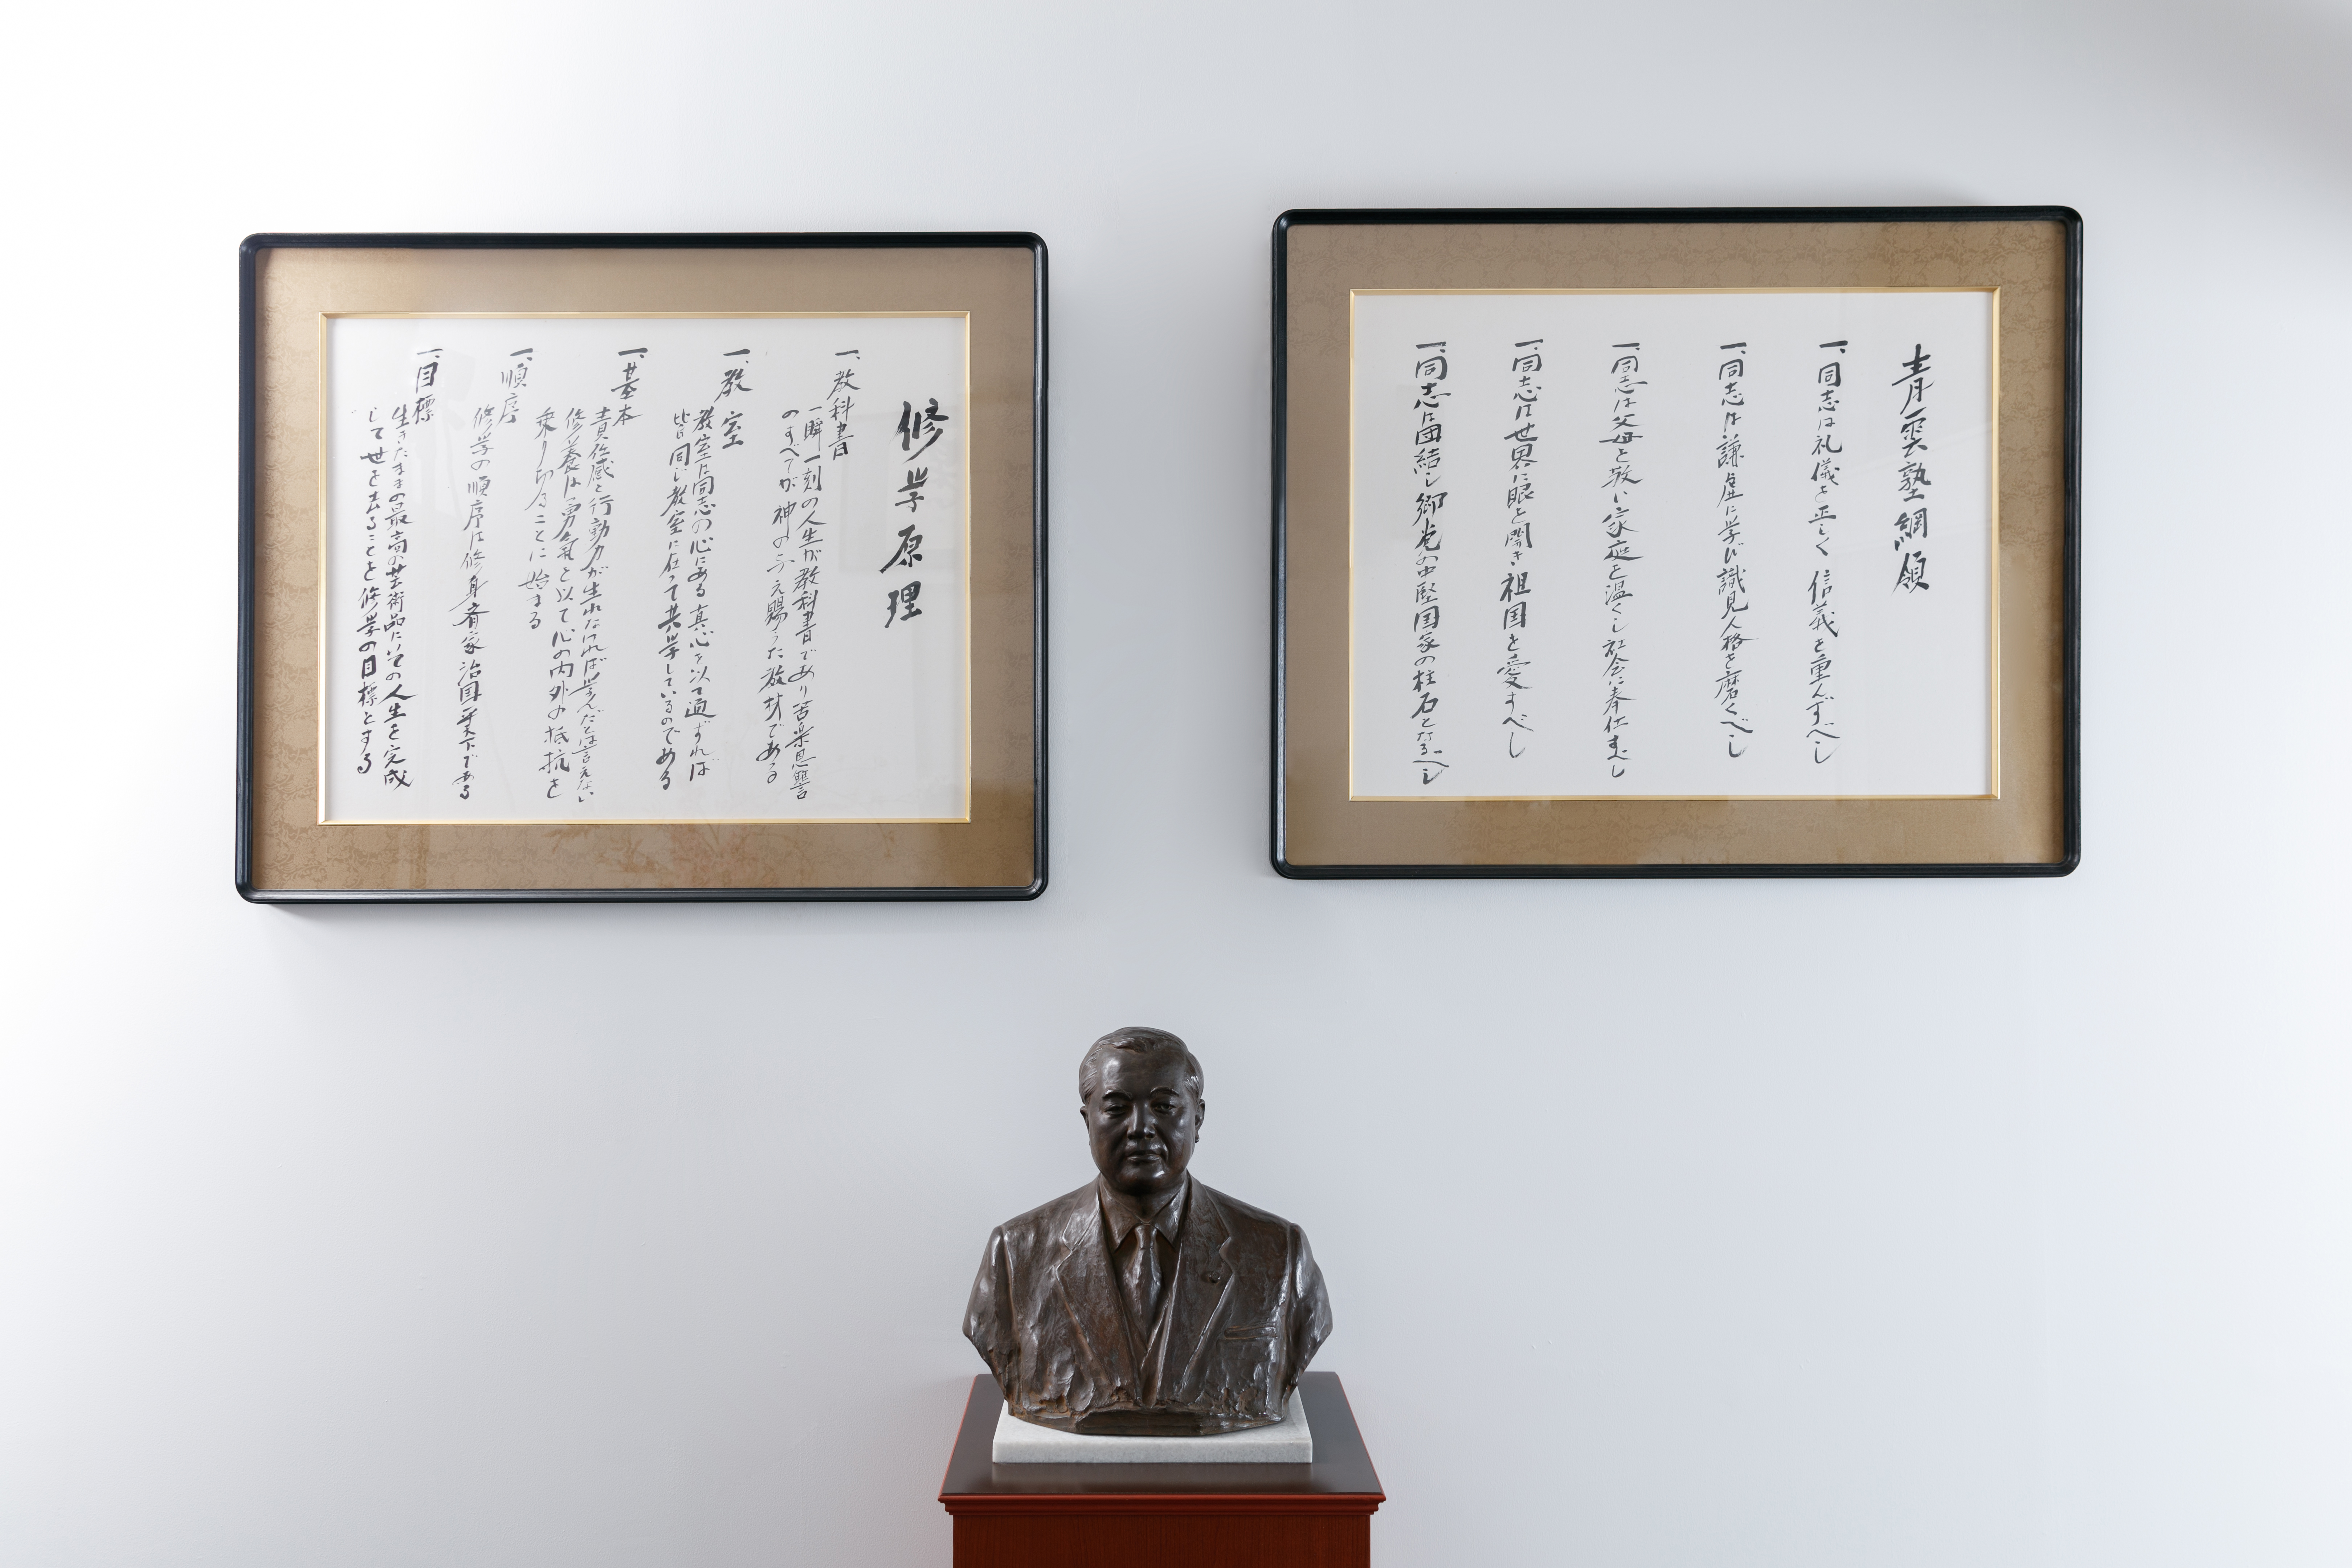 青雲塾綱領
一、同志は礼儀を正しく信義を重んずべし
一、同志は謙虚に学び識見人格を磨くべし
一、同志は父母を敬い家庭を温くし社会に奉仕すべし
一、同志は世界に眼を開き祖国を愛すべし
一、同志は団結し郷党の中堅国家の柱石となるべし
修学原理
一、教科書
一瞬一刻の人生が教科書であり苦楽恩讐
のすべてが神の与え賜うた教材である
一、教室
教室は同志の心にある真心を以て通ずれば
皆同じ教室に在って共学しているのである
一、基本
責任感と行動力が生れなければ学んだとは言えない
修養は勇気を以て心の内外の抵抗を
乗り切ることに始まる
一、順序
修学の順序は修身斉家治国平天下である
一、目標
生きたままの最高の芸術品としての人生を完成
して世を去ることを修学の目標とする